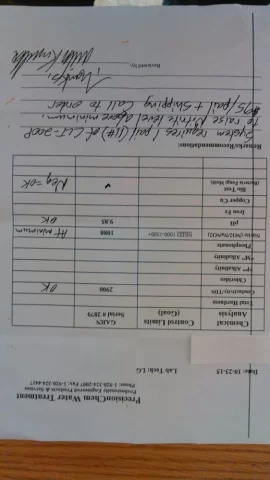 PrecisionChem Water Treatment
Professionally Engineered Products & Services
Date: 10-23-15 Lab Tech: LG
Chemical Analysis Control Limits (Goal) GAREN Serial # 2879
Total Hardness
Conductivity/TDS 2900 OK
Chlorides
"P" Alkalinity
"M" Alkalinity
Phosphonate
Nitrite (NO2/NaNO2) 1000-1500+ 1080 At minimum
pH 9.85 OK
Free Iron
Copper Cu
Bio Test
(Bacteria Fungi Mold) ✓ Neg = OK
Remarks/Recommendations:
System requires 1 pail (11#) of CLT-200P
to raise Nitrite level above minimum.
$95/pail + shipping Call to order
Thanks,
Reviewed by: